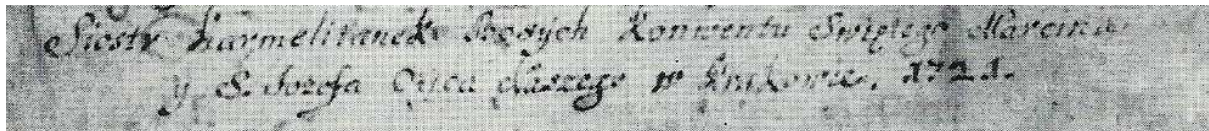 Siostr Karmelitanek Bosych Konwentu Swiętego Marcina
y S. Jozefa Oyca Naszego w Krakowie. 1721.